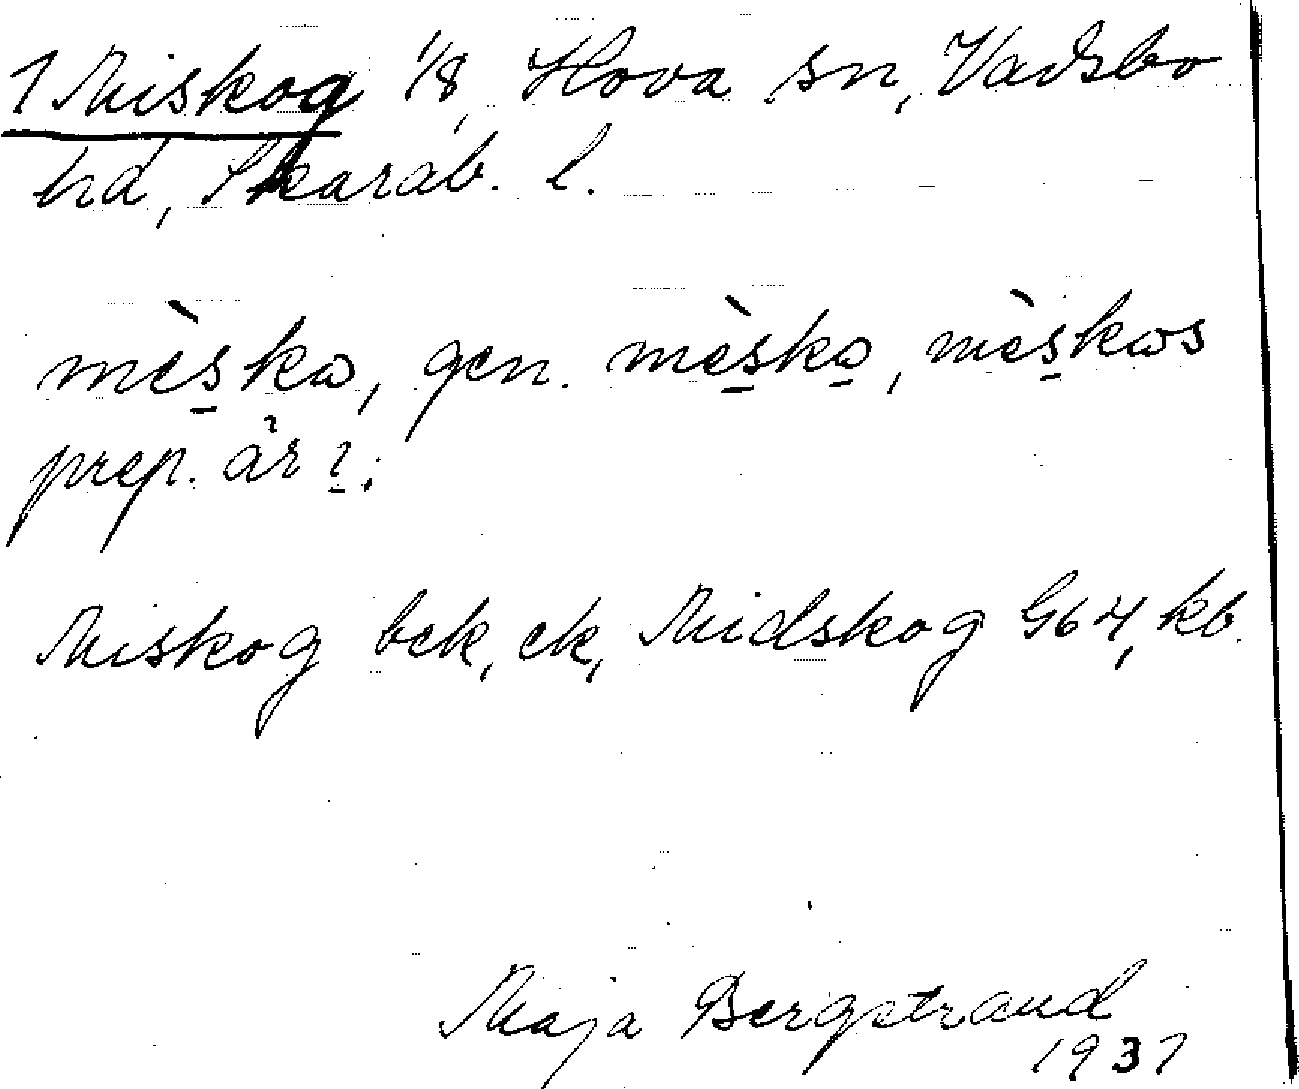 1 Miskog 1/8, Hova sn, Vadsbo
hd, Skarab. l.
mèskω, gen. mèskω, mèskωs
prep. år ı.
Miskog bek, ek, Midskog Gb 4, kb.
Maja Bergstrand
1937